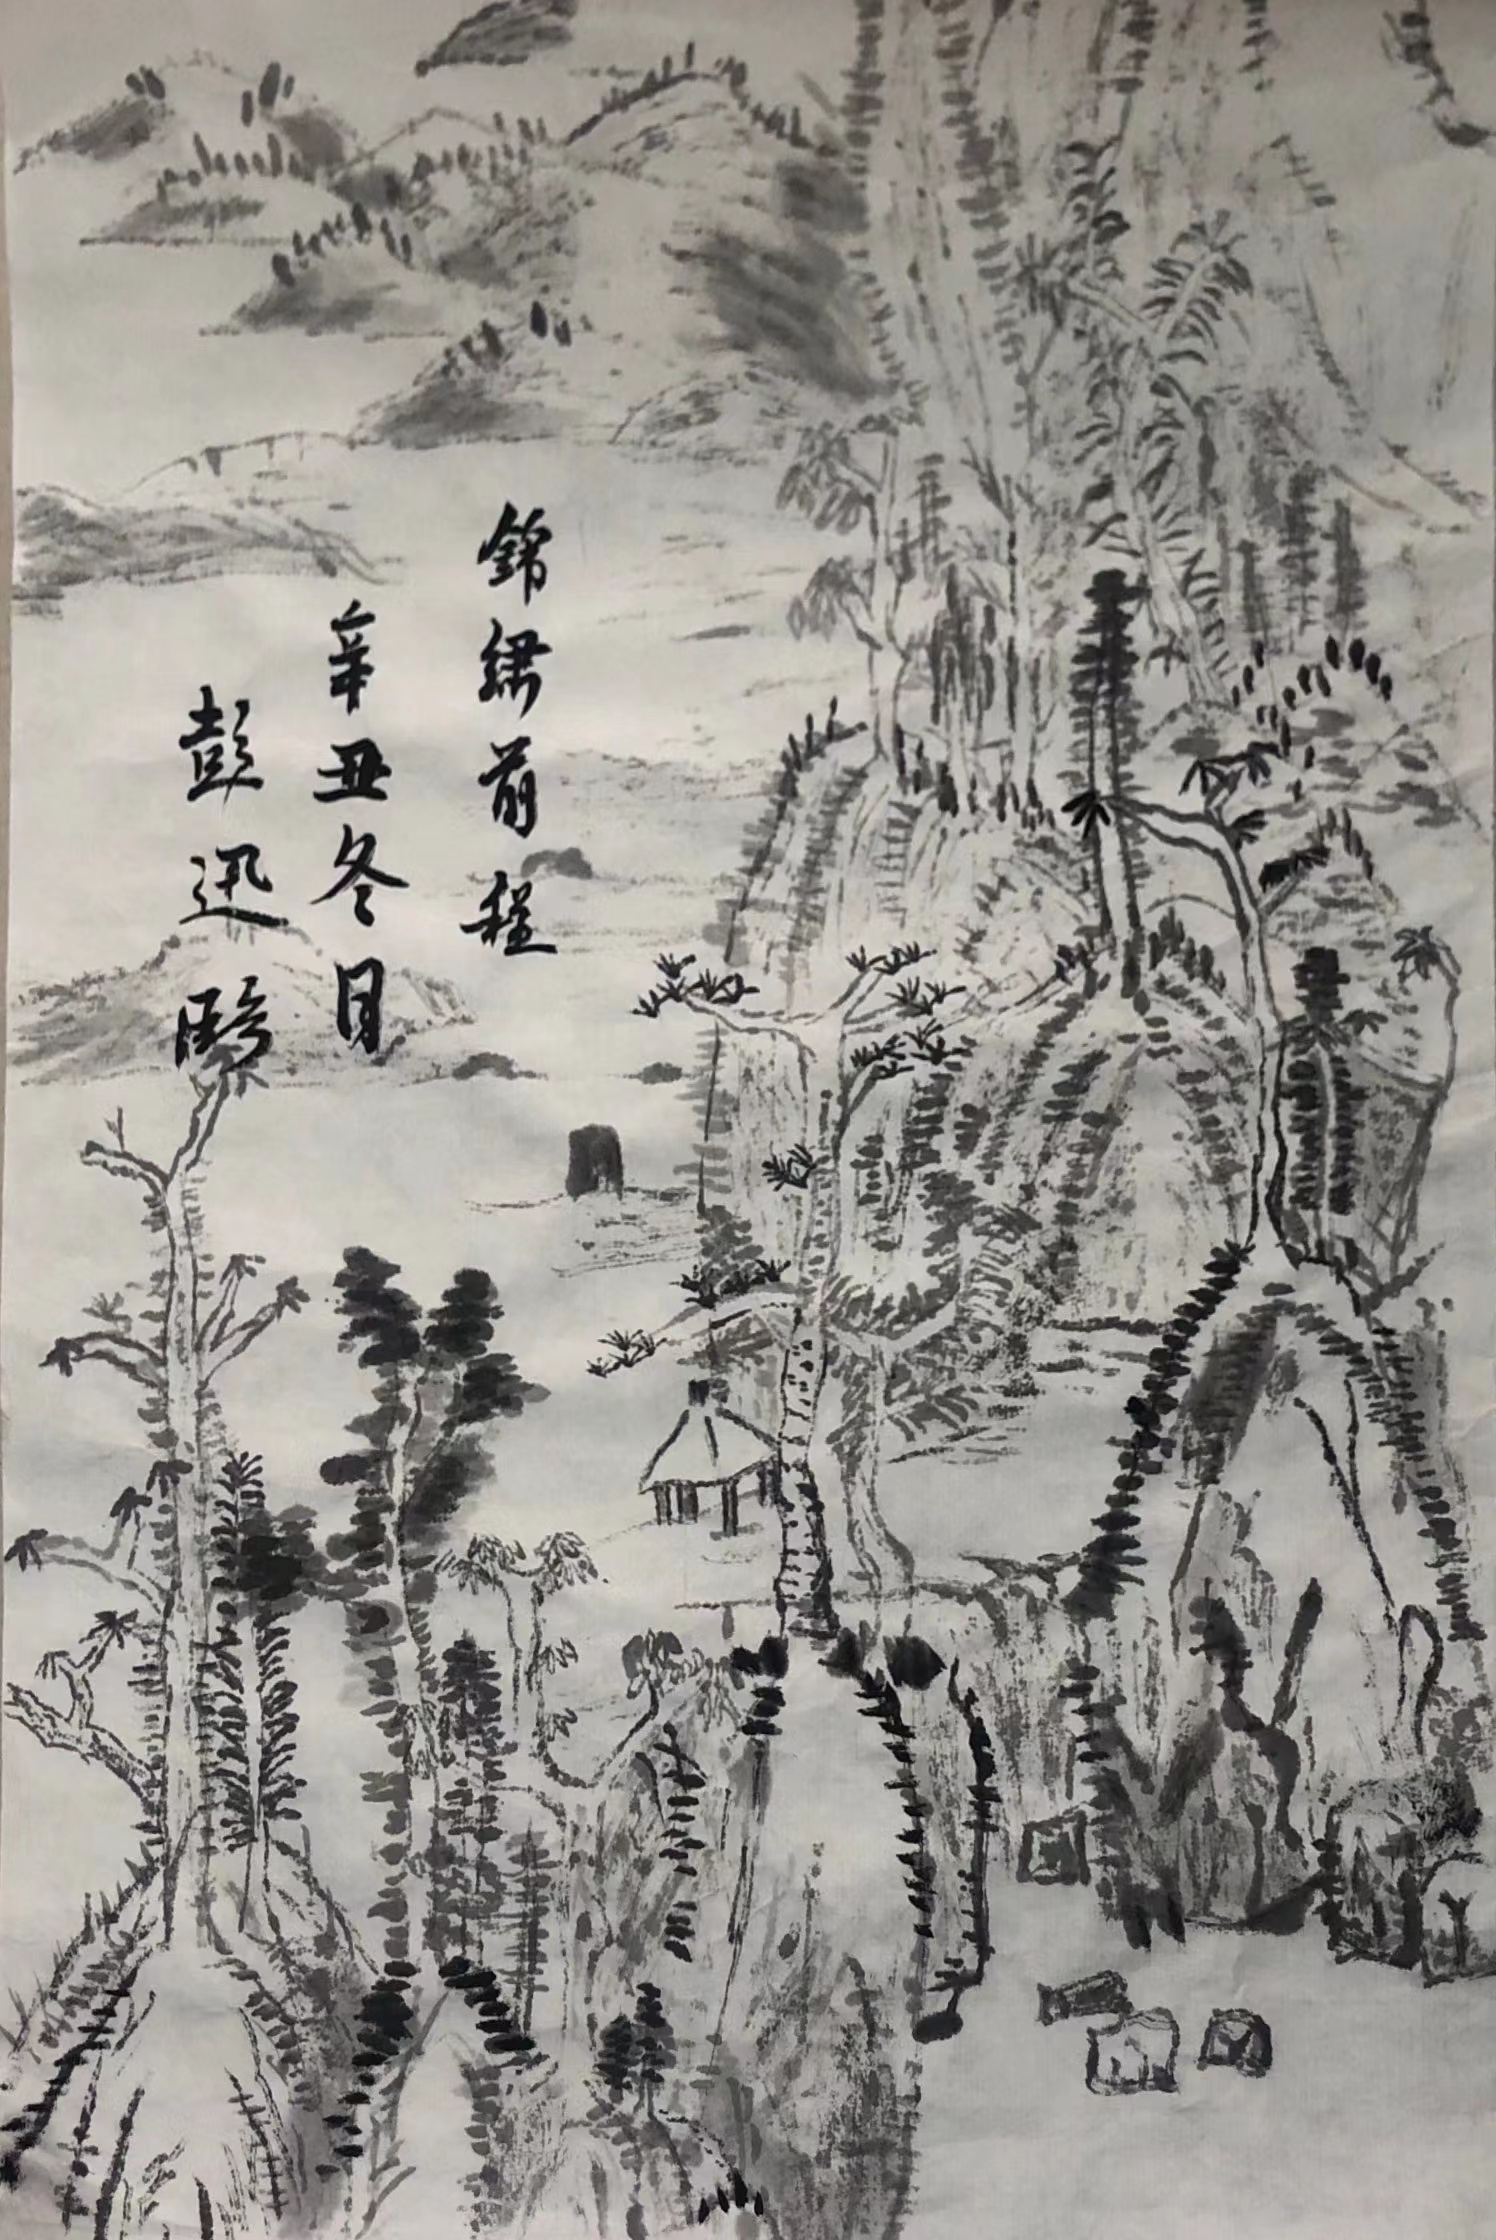 錦繡前程
辛丑冬月
彭迅